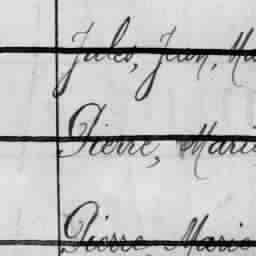 Jules, Jean, Ma
Pierre, Marie
Pierre Marie